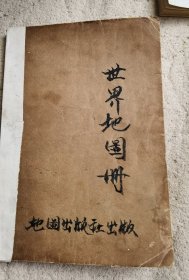 世界地圖册
地図出版社出版